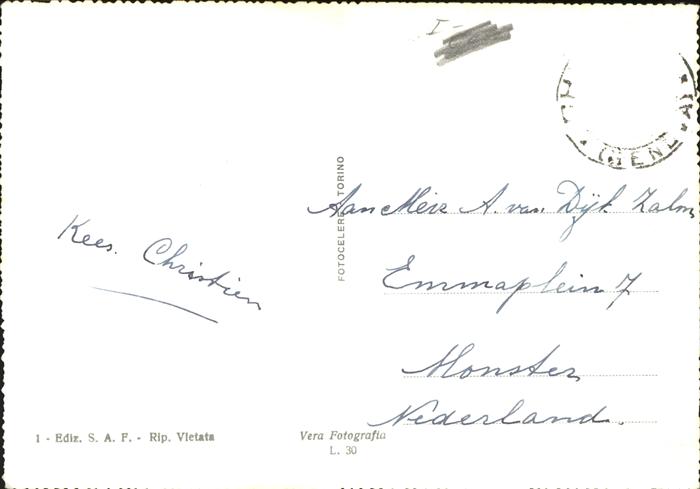 I
Kees. Christien
FOTOCELERE TORINO
Aan Meiz A. van Dijk Zalm
Emmaplein 7
Monster
Nederland.
1 - Ediz. S. A. F. - Rip. Vietata
Vera Fotografia
L. 30